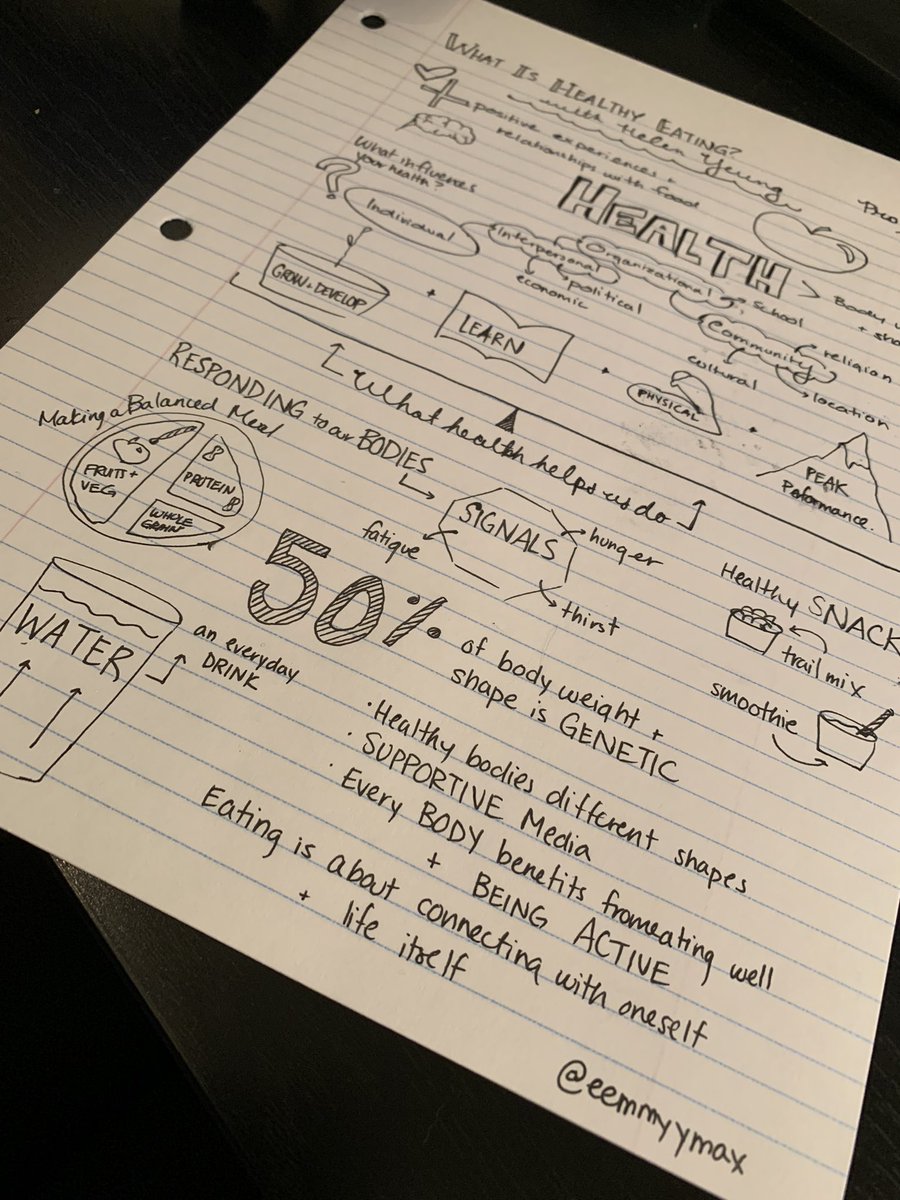 WHAT IS HEALTHY EATING?
with Helen Yeung
+ positive experiences +
relationships with food
What influences
your health?
HEALTH
Body
Individual
Interpersonal
economic
political
Organizational
School
Community
cultural
religion
location
GROW + DEVELOP
+
LEARN
+
PHYSICAL
PEAK
Peformance.
What health helps us do
RESPONDING to our BODIES
SIGNALS
fatigue
hunger
thirst
Making a Balanced Meal
FRUITS +
VEG
PROTEIN
WHOLE
GRAIN
WATER
an everyday
DRINK
50%
of body weight +
shape is GENETIC
Healthy SNACK
trail mix
smoothie
· Healthy bodies different shapes
· SUPPORTIVE Media
· Every BODY benefits from eating well
+ BEING ACTIVE
Eating is about connecting with oneself
+ life itself
@eemmyymax